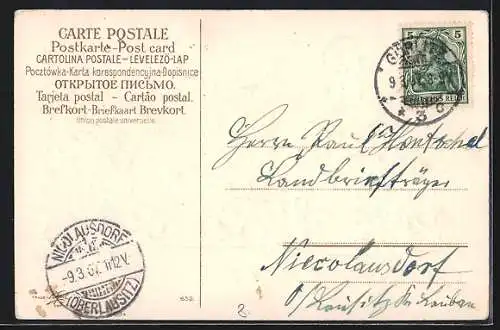 CARTE POSTALE
Postkarte-Post card
CARTOLINA POSTALE = LEVELEZŐ-LAP
Pocztówka-Karta korespondencyjna-Dopisnice
ОТКРЫТОЕ ПИСЬМО.
Tarjeta postal - Cartão postal.
Brefkort-Briefkaart Brevkort.
Union postale universelle.
5 5
GÖRLITZ
9.3.
* 3 c
Herrn Paul
Landbriefträger
Niccolausdorf
o/Lausitz Kr. Lauban
NICOLAUSDORF
-9.3.07. 11-12V.
(OBERLAUSITZ)
652.
2.